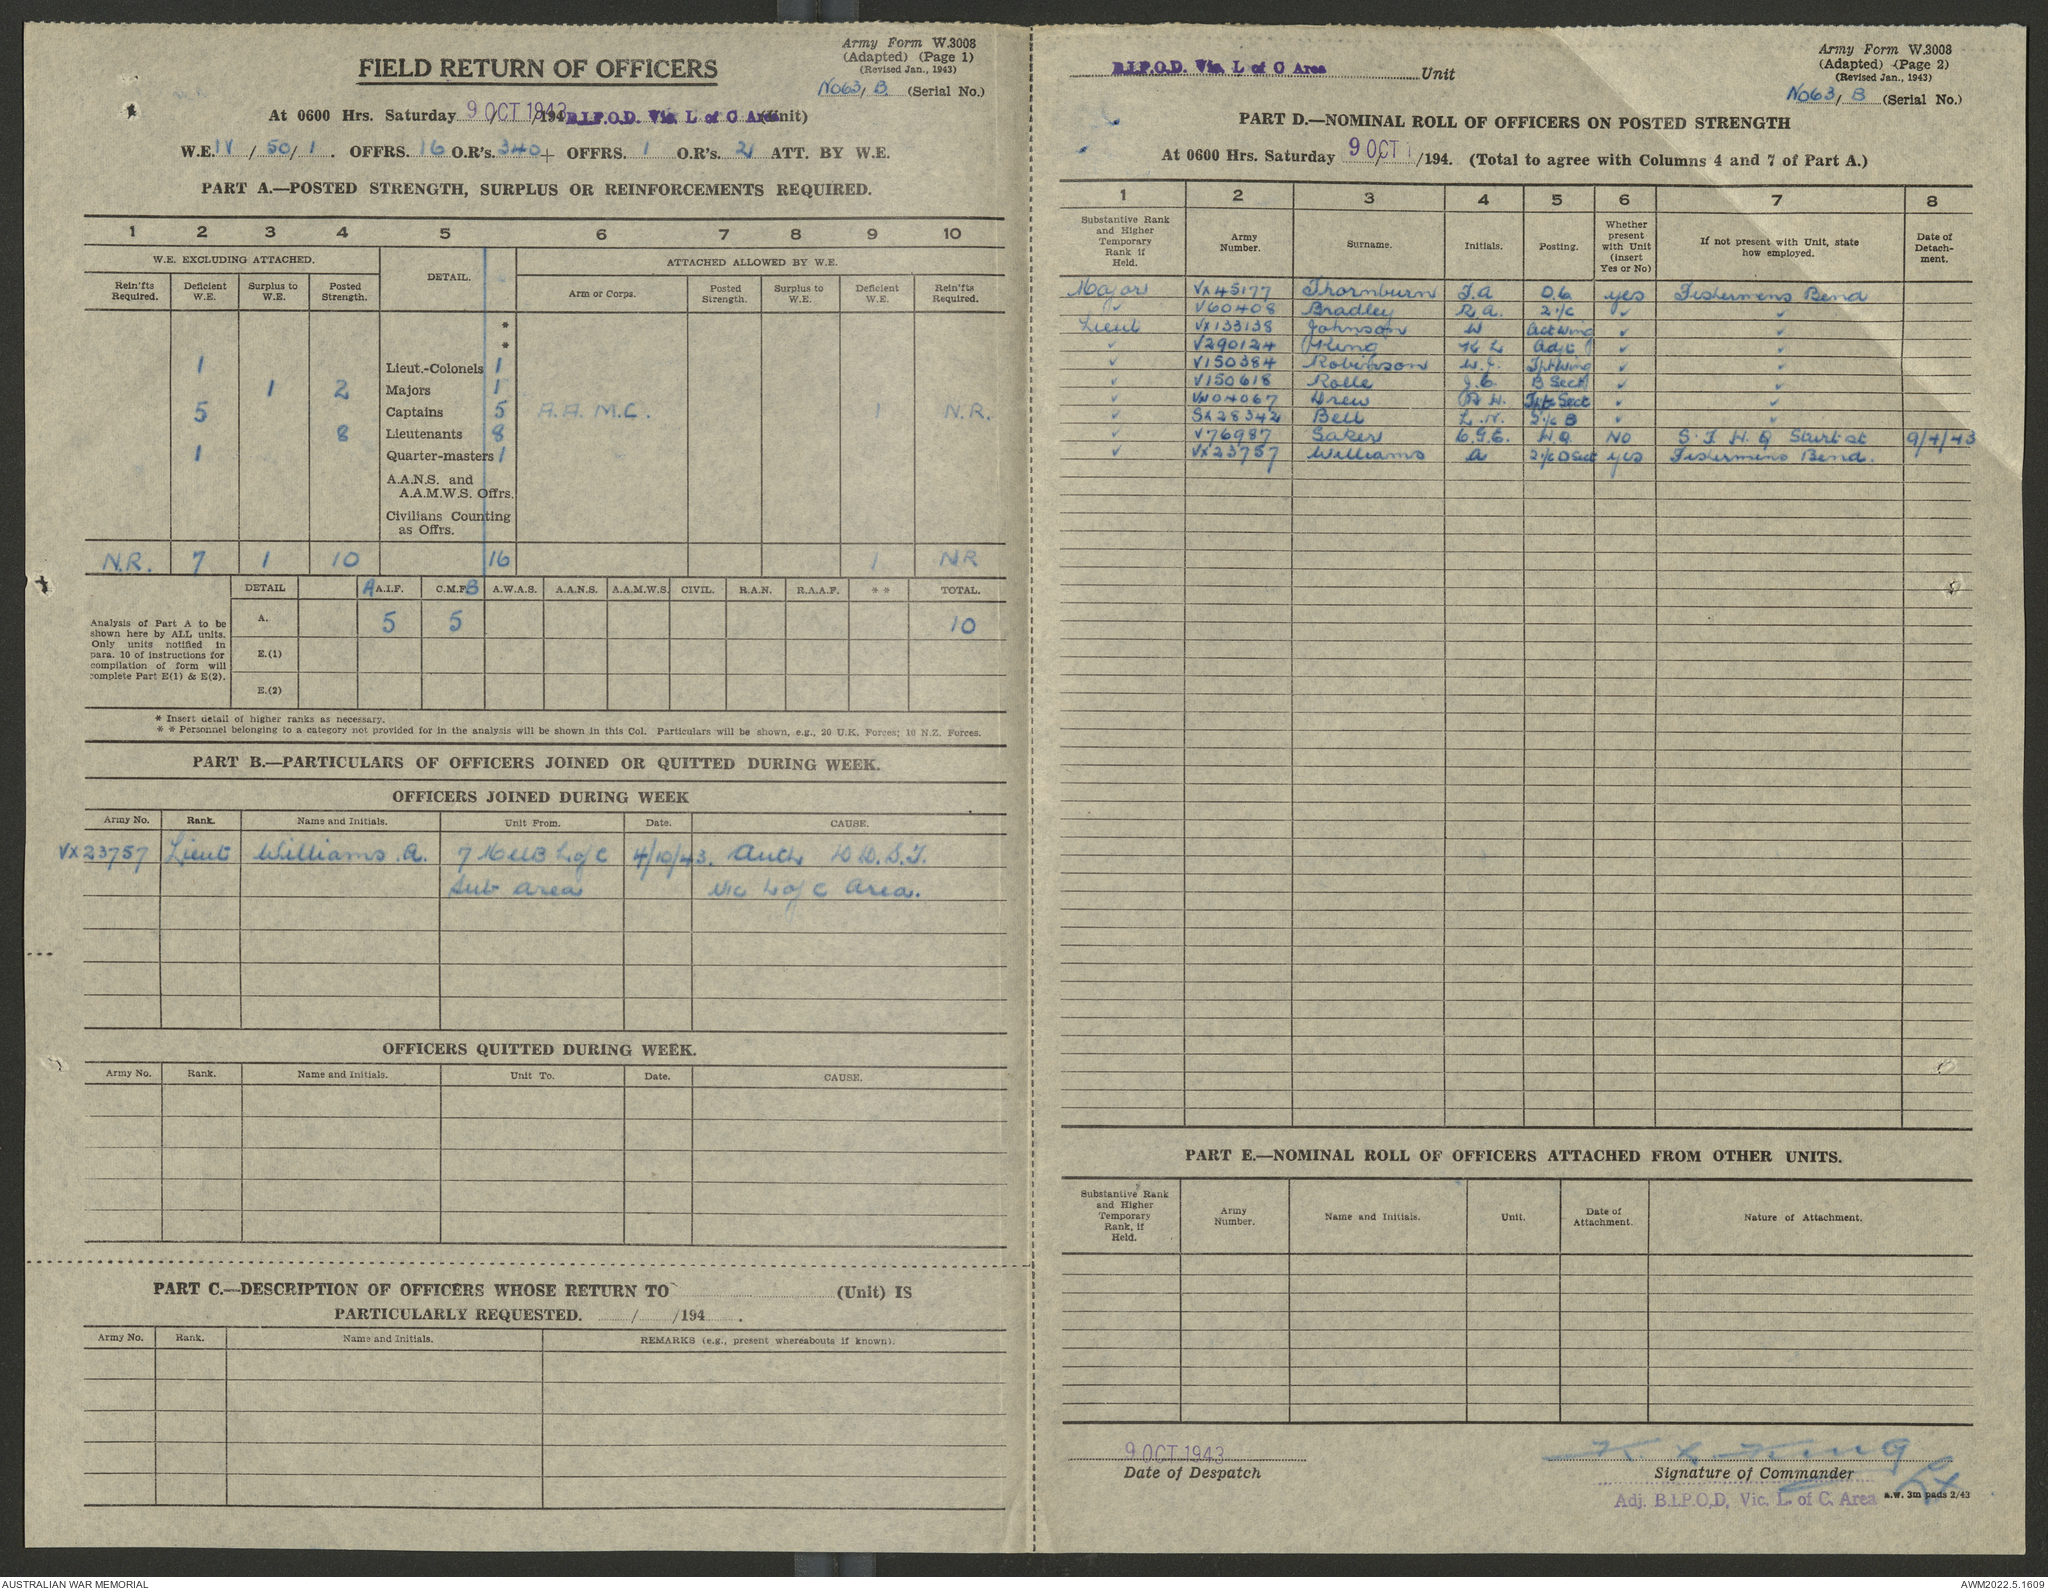 Army Form W.3008
(Adapted) (Page 1)
(Revised Jan., 1943)
No63/B (Serial No.)
FIELD RETURN OF OFFICERS
At 0600 Hrs. Saturday 9 OCT 1943 /194 B.I.P.O.D. Vic. L of C Area (Unit)
W.E. IV / 50 / 1 . OFFRS. 16 O.R's. 340 + OFFRS. 1 O.R's. 21 ATT. BY W.E.
PART A.—POSTED STRENGTH, SURPLUS OR REINFORCEMENTS REQUIRED.
1 2 3 4 5 6 7 8 9 10
W.E. EXCLUDING ATTACHED. DETAIL. ATTACHED ALLOWED BY W.E.
Rein'fts Required. Deficient W.E. Surplus to W.E. Posted Strength. Arm or Corps. Posted Strength. Surplus to W.E. Deficient W.E. Rein'fts Required.
*
*
1 Lieut.-Colonels 1
1 2 Majors 1
5 Captains 5 A.A.M.C. 1 N.R.
8 Lieutenants 8
1 Quarter-masters 1
A.A.N.S. and
A.A.M.W.S. Offrs.
Civilians Counting
as Offrs.
N.R. 7 1 10 16 1 NR
DETAIL A A.I.F. C.M.F. B A.W.A.S. A.A.N.S. A.A.M.W.S. CIVIL. R.A.N. R.A.A.F. * * TOTAL.
Analysis of Part A to be
shown here by ALL units.
Only units notified in
para. 10 of instructions for
compilation of form will
complete Part E(1) & E(2).
A. 5 5 10
E.(1)
E.(2)
* Insert detail of higher ranks as necessary.
* * Personnel belonging to a category not provided for in the analysis will be shown in this Col. Particulars will be shown, e.g., 20 U.K. Forces; 10 N.Z. Forces.
PART B.—PARTICULARS OF OFFICERS JOINED OR QUITTED DURING WEEK.
OFFICERS JOINED DURING WEEK
Army No. Rank. Name and Initials. Unit From. Date. CAUSE.
VX23757 Lieut Williams. A. 7 MUB L of C 4/10/43. Auth D.D.S.T.
Sub area Vic L of C Area.
OFFICERS QUITTED DURING WEEK.
Army No. Rank. Name and Initials. Unit To. Date. CAUSE.
PART C.—DESCRIPTION OF OFFICERS WHOSE RETURN TO (Unit) IS
PARTICULARLY REQUESTED. / /194 .
Army No. Rank. Name and Initials. REMARKS (e.g., present whereabouts if known).
Army Form W.3008
(Adapted) (Page 2)
(Revised Jan., 1943)
No63/B (Serial No.)
B.I.P.O.D. Vic. L of C Area Unit
PART D.—NOMINAL ROLL OF OFFICERS ON POSTED STRENGTH
At 0600 Hrs. Saturday 9 OCT 1 /194. (Total to agree with Columns 4 and 7 of Part A.)
1 2 3 4 5 6 7 8
Substantive Rank and Higher Temporary Rank if Held. Army Number. Surname. Initials. Posting. Whether present with Unit (insert Yes or No) If not present with Unit, state how employed. Date of Detachment.
Major VX45177 Thornburn J.A O.C yes Fishermens Bend
✓ V60408 Bradley R.A. 2i/c ✓ ✓
Lieut VX133138 Johnson W Act Wing ✓ ✓
✓ V290124 King K L Adjt ✓ ✓
✓ V150384 Robinson W.J. Tpt Wing ✓ ✓
✓ V150618 Rolle J.C. B Sect ✓ ✓
✓ VX104067 Drew R.H. Sect ✓ ✓
✓ SX28342 Bell L.N. 2i/c B ✓ ✓
✓ V76987 Saker C.G.E. H.Q. NO S.T.H.Q Sturt st 9/4/43
✓ VX23757 Williams A 2i/c D Sect yes Fishermens Bend.
PART E.—NOMINAL ROLL OF OFFICERS ATTACHED FROM OTHER UNITS.
Substantive Rank and Higher Temporary Rank, if Held. Army Number. Name and Initials. Unit. Date of Attachment. Nature of Attachment.
9 OCT 1943
Date of Despatch
K L King Lt
Signature of Commander
Adj. B.I.P.O.D, Vic. L. of C. Area
A.W. 3m pads 2/43
AUSTRALIAN WAR MEMORIAL
AWM2022.5.1609